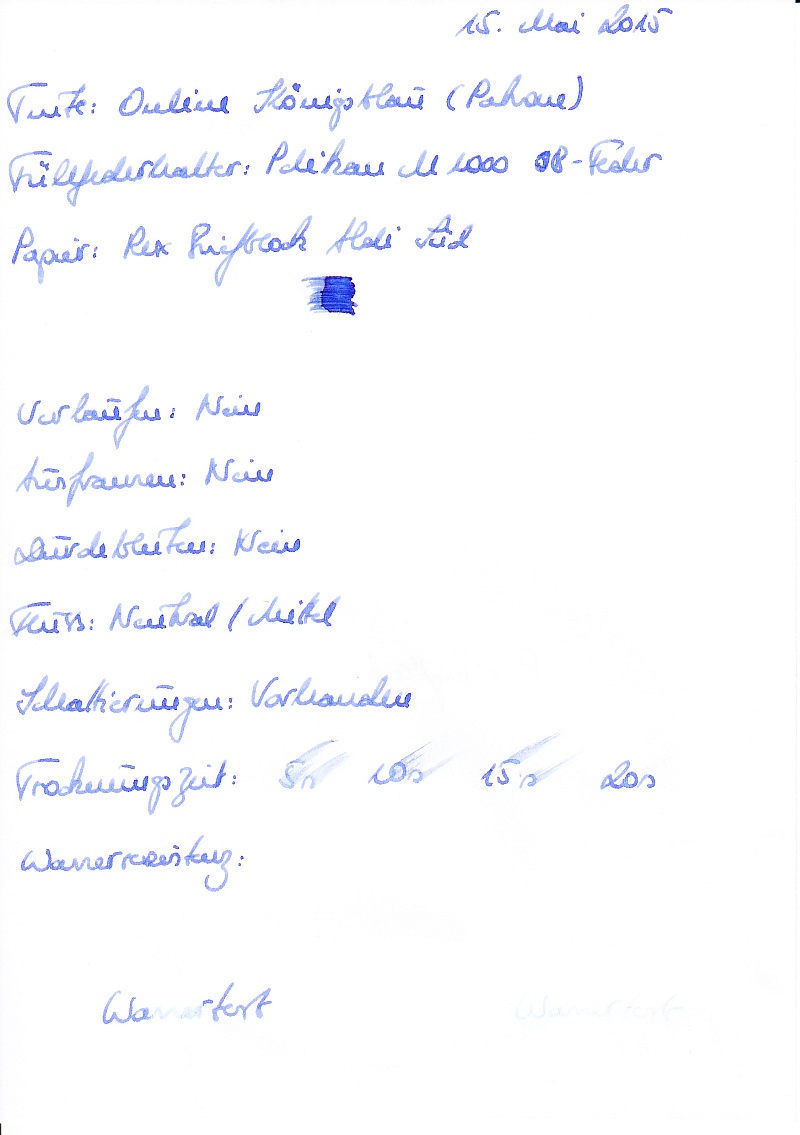 15. Mai 2015
Tinte: Online Königsblau (Patrone)
Füllfederhalter: Pelikan M 1000 OB-Feder
Papier: Rex Briefblock Aldi Süd
Verlaufen: Nein
Ausfransen: Nein
Durchbluten: Nein
Fluss: Neutral / Mittel
Schattierungen: Vorhanden
Trocknungszeit: 5s 10s 15s 20s
Wasserresistenz:
Wassertest Wassertest